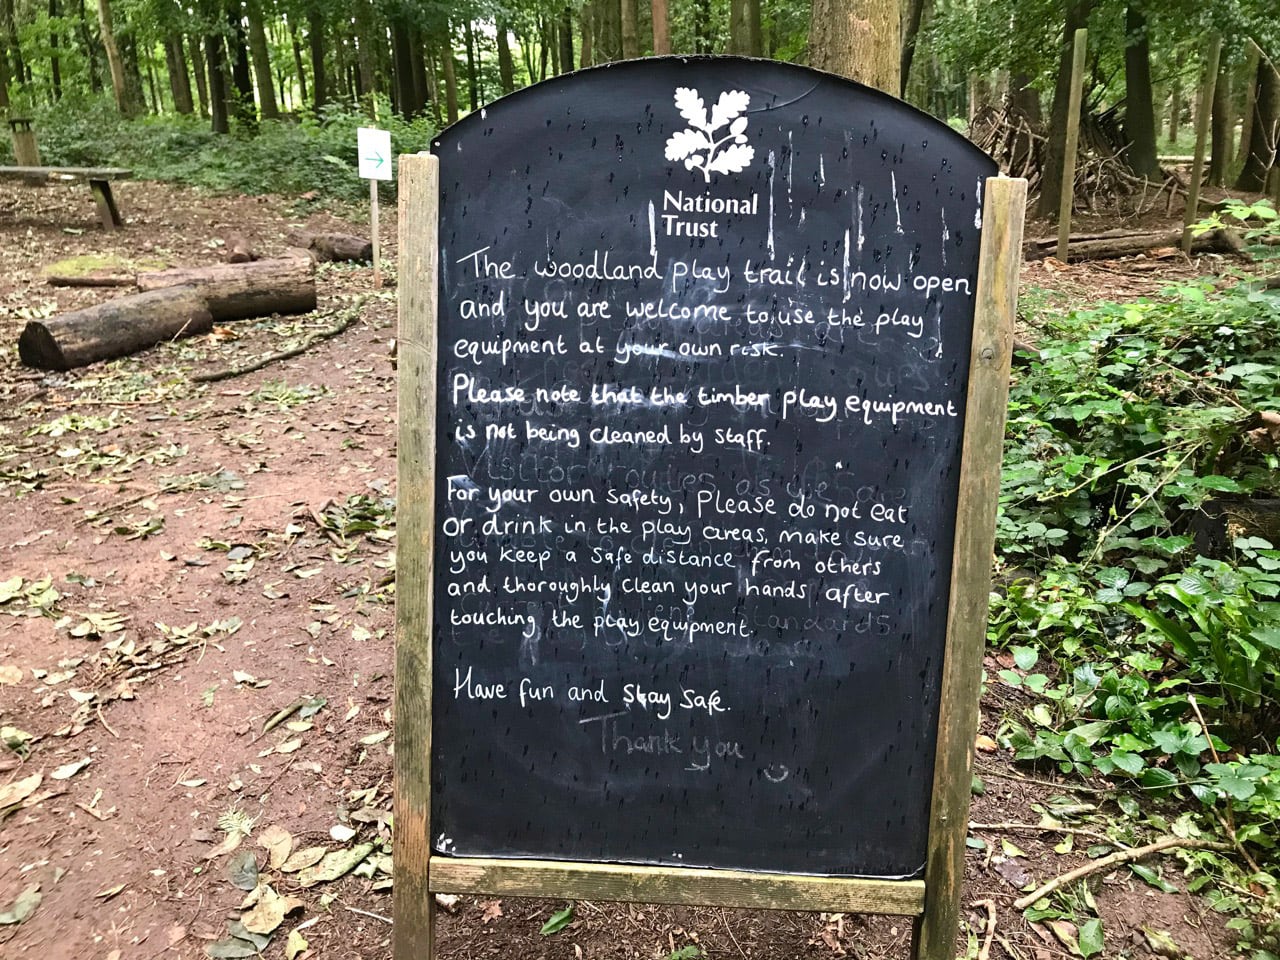 National
Trust
The woodland play trail is now open
and you are welcome to use the play
equipment at your own risk.
Please note that the timber play equipment
is not being cleaned by staff.
Visitor routes as we have
For your own safety, please do not eat
or drink in the play areas, make sure
you keep a safe distance from others
and thoroughly clean your hands after
touching the play equipment.
standards.
Have fun and stay safe.
Thank you